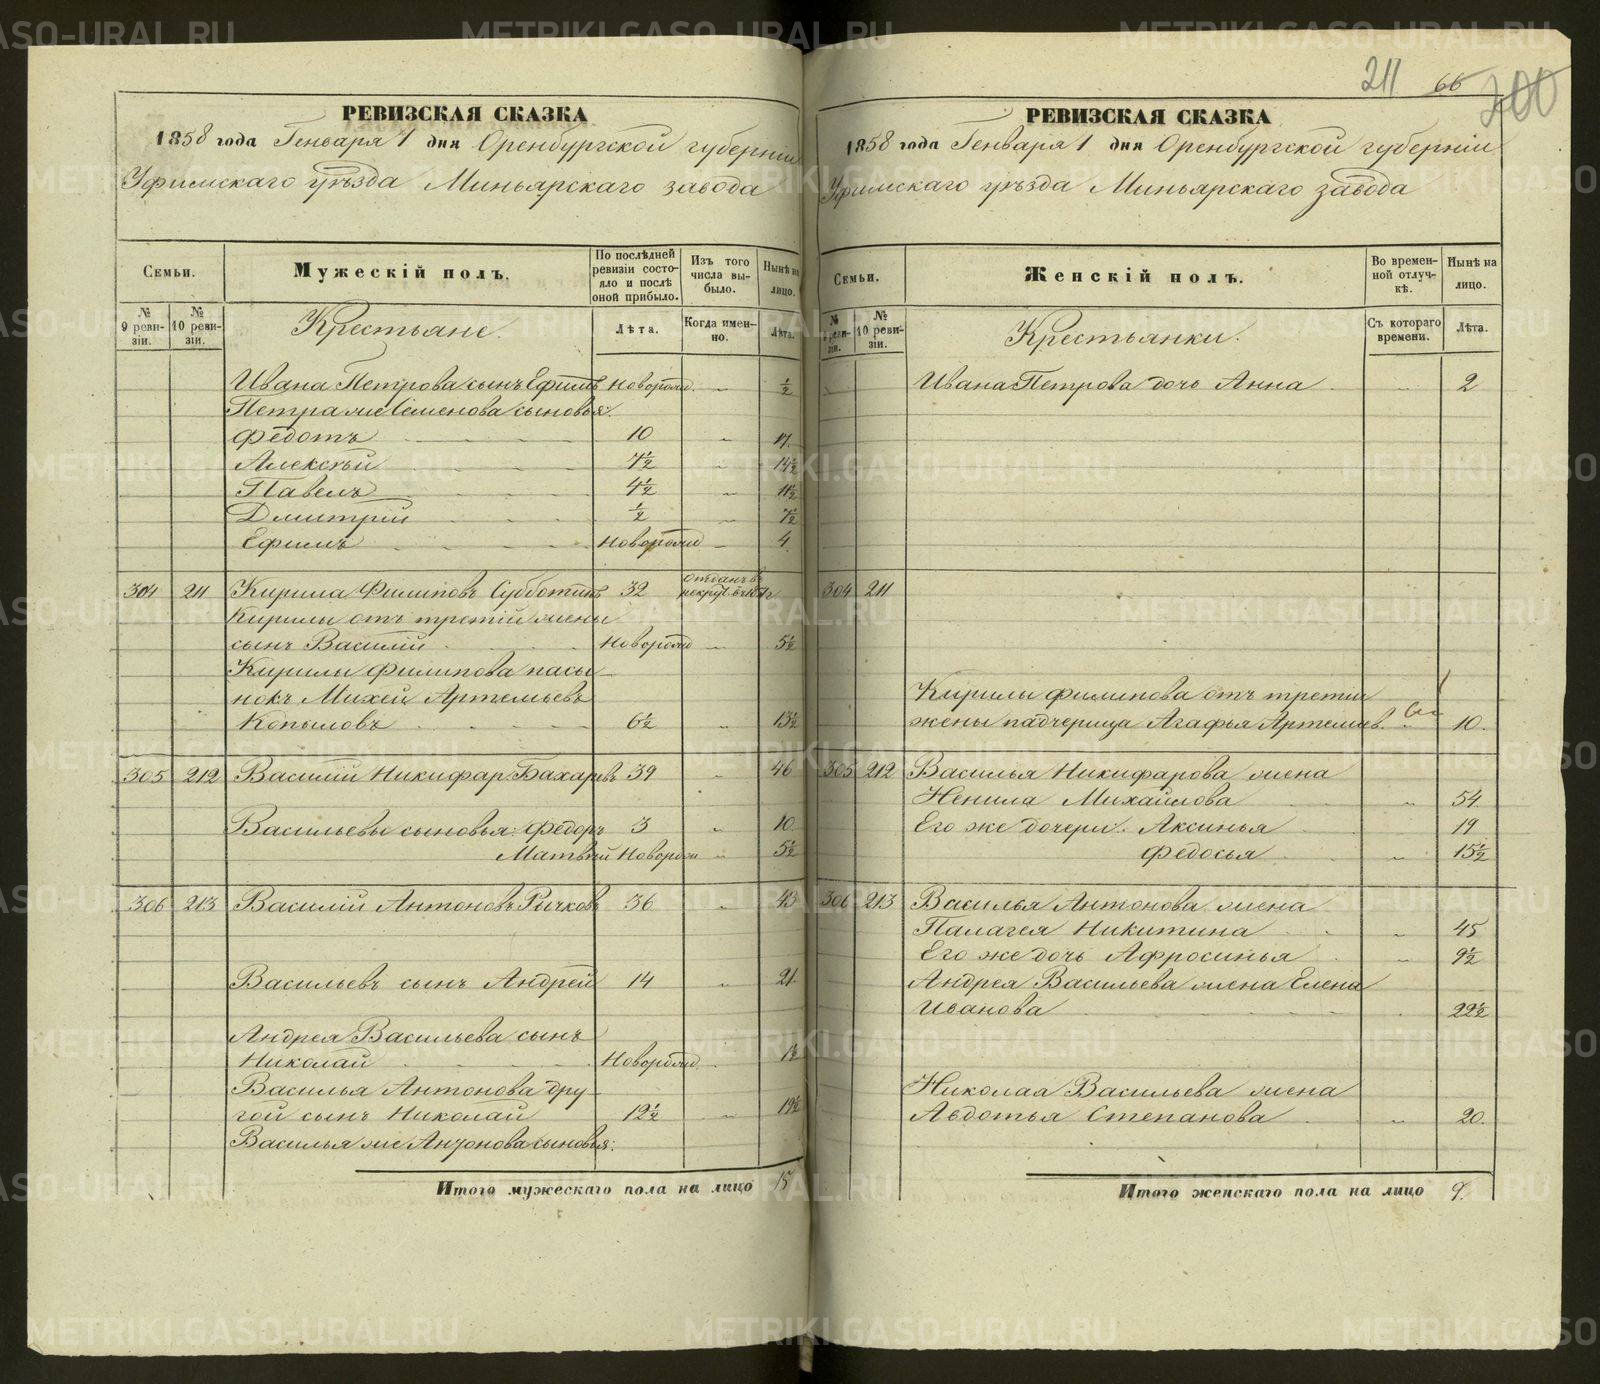 211 66 200
РЕВИЗСКАЯ СКАЗКА
1858 года Генваря 1 дня Оренбургской губерніи
Уфимскаго уѣзда Миньярскаго завода
Семьи.
Мужескій полъ.
По послѣдней ревизіи состояло и послѣ оной прибыло.
Изъ того числа выбыло.
Нынѣ на лицо.
№ 9 ревизіи.
№ 10 ревизіи.
Крестьяне.
Лѣта.
Когда именно.
Лѣта.
Ивана Петрова сынъ Ефимъ новорожд. „ ½
Петра же Семенова сыновья:
Федотъ 10 „ 17.
Алексѣй 7½ „ 14½
Павелъ 4½ „ 11½
Дмитрій ½ „ 7½
Ефимъ новорожд „ 4.
304 211 Кирила Филиповъ Субботинъ 32 отданъ въ
рекрут. въ
Кирилы отъ третій жены
сынъ Василій новорожд „ 5½
Кирилы Филипова пасы-
нокъ Михей Артемьевъ
Копыловъ 6½ „ 13½
305 212 Василій Никифар. Бахаревъ 39 „ 46
Васильевы сыновья: Федоръ 3 „ 10
Матвѣй новорож „ 5½
306 213 Василій Антоновъ Ричковъ 36 „ 43
Васильевъ сынъ Андрей 14 „ 21.
Андрея Васильева сынъ
Николай новорожд. „ 1½
Василья Антонова дру-
гой сынъ Николай 12½ „ 19½
Василья же Антонова сыновья:
Итого мужескаго пола на лицо 15
РЕВИЗСКАЯ СКАЗКА
1858 года Генваря 1 дня Оренбургской губерніи
Уфимскаго уѣзда Миньярскаго завода
Семьи.
Женскій полъ.
Во временной отлучкѣ.
Нынѣ на лицо.
№ 9 ревизіи.
№ 10 ревизіи.
Крестьянки.
Съ котораго времени.
Лѣта.
Ивана Петрова дочь Анна „ 2
304 211
Кирилы Филипова отъ третій
жены падчерица Агафья Артемьев. „ 10.
305 212 Василья Никифарова жена
Ненила Михайлова „ 54
Его же дочери: Аксинья 19
Федосья „ 15½
306 213 Василья Антонова жена
Палагея Никитина „ 45
Его же дочь Афросинья „ 9½
Андрея Васильева жена Елена
Иванова 22½
Николая Васильева жена
Авдотья Степанова „ 20.
Итого женскаго пола на лицо 9.
METRIKI.GASO-URAL.RU